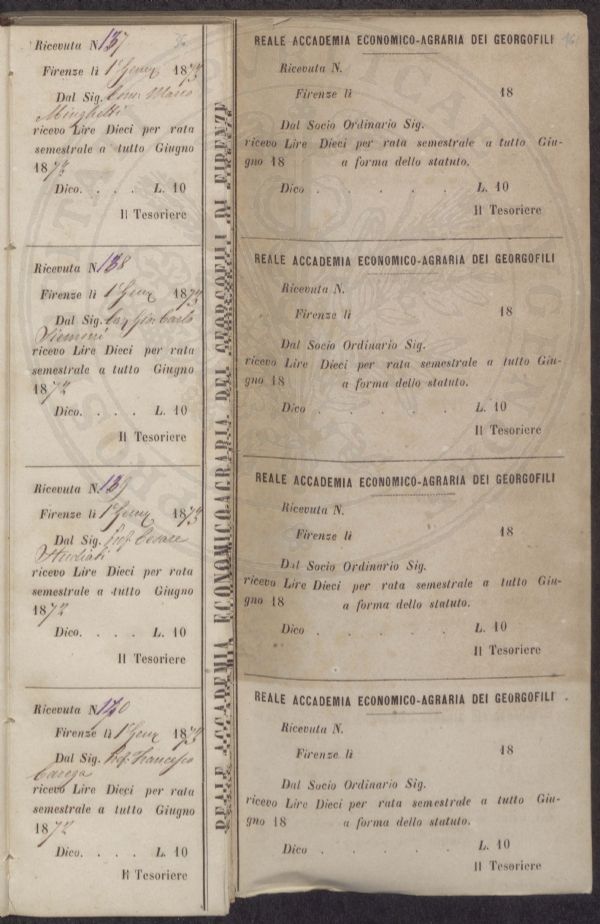 Ricevuta N. 137
Firenze lì 1° Genn 1873
Dal Sig. Com. Marco
Minghetti
ricevo Lire Dieci per rata
semestrale a tutto Giugno
1872
Dico. . . . L. 10
Il Tesoriere
Ricevuta N. 138
Firenze lì 1° Genn 1873
Dal Sig. Gio. Carlo
Siemoni
ricevo Lire Dieci per rata
semestrale a tutto Giugno
1872
Dico. . . . L. 10
Il Tesoriere
Ricevuta N. 139
Firenze lì 1° Genn 1873
Dal Sig. Prof. Cesare
Studiati
ricevo Lire Dieci per rata
semestrale a tutto Giugno
1872
Dico. . . . L. 10
Il Tesoriere
Ricevuta N. 140
Firenze lì 1° Genn 1873
Dal Sig. Prof. Francesco
Carega
ricevo Lire Dieci per rata
semestrale a tutto Giugno
1872
Dico. . . . L. 10
Il Tesoriere
REALE ACCADEMIA ECONOMICO-AGRARIA DEI GEORGOFILI DI FIRENZE
REALE ACCADEMIA ECONOMICO-AGRARIA DEI GEORGOFILI
Ricevuta N.
Firenze lì 18
Dal Socio Ordinario Sig.
ricevo Lire Dieci per rata semestrale a tutto Giu-
gno 18 a forma dello statuto.
Dico . . . . L. 10
Il Tesoriere
REALE ACCADEMIA ECONOMICO-AGRARIA DEI GEORGOFILI
Ricevuta N.
Firenze lì 18
Dal Socio Ordinario Sig.
ricevo Lire Dieci per rata semestrale a tutto Giu-
gno 18 a forma dello statuto.
Dico . . . . L. 10
Il Tesoriere
REALE ACCADEMIA ECONOMICO-AGRARIA DEI GEORGOFILI
Ricevuta N.
Firenze lì 18
Dal Socio Ordinario Sig.
ricevo Lire Dieci per rata semestrale a tutto Giu-
gno 18 a forma dello statuto.
Dico . . . . L. 10
Il Tesoriere
REALE ACCADEMIA ECONOMICO-AGRARIA DEI GEORGOFILI
Ricevuta N.
Firenze lì 18
Dal Socio Ordinario Sig.
ricevo Lire Dieci per rata semestrale a tutto Giu-
gno 18 a forma dello statuto.
Dico . . . . L. 10
Il Tesoriere